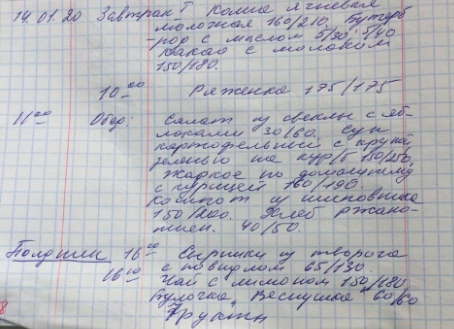 14.01.20 Завтрак Каша ячневая
молочная 160/210. Бутерб
-род с маслом 5/30; 5/40
Какао с молоком
150/180.
10 00 Ряженка 175/175
11 00 Обед: Салат из свеклы с яб-
локами 30/60. Суп
картофельный с крупой
зеленью на кур/б 150/250,
Жаркое по домашнему
с курицей 160/190.
Компот из шиповника
150/200. Хлеб ржано-
пшен. 40/50.
Полдник 16 00 Сырники из творога
16 10 с повидлом 65/130.
Чай с лимоном 150/180
Булочка "Веснушка" 60/60
Фрукты